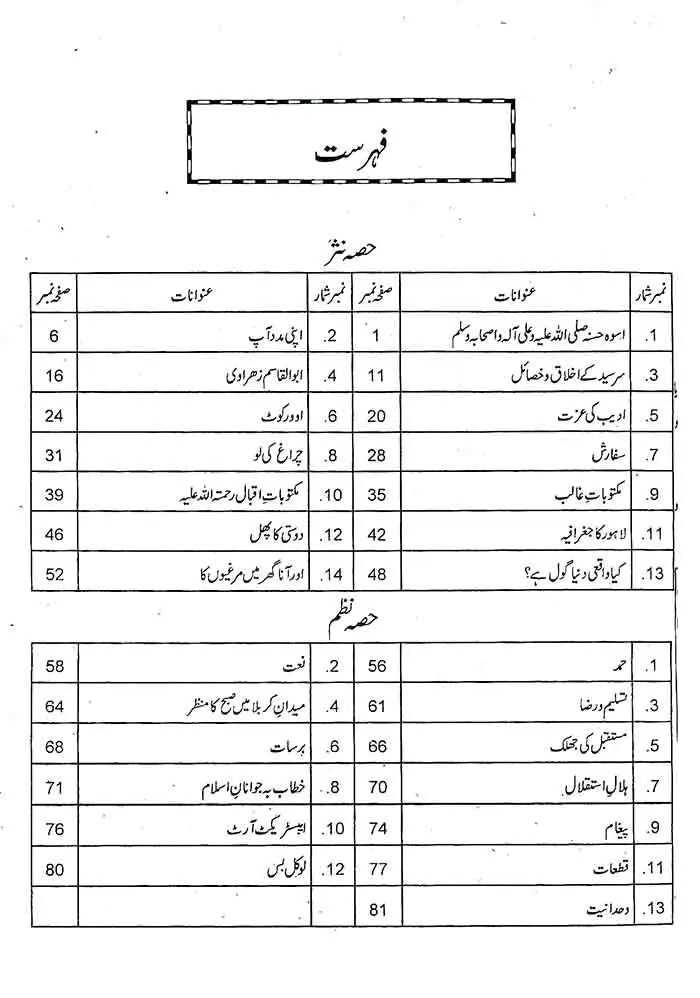 فہرست
حصہ نثر
نمبر شمار عنوانات صفحہ نمبر نمبر شمار عنوانات صفحہ نمبر
1. اسوہ حسنہ صلی اللہ علیہ وعلی آلہ واصحابہ وسلم 1 2. اپنی مدد آپ 6
3. سرسید کے اخلاق و خصائل 11 4. ابوالقاسم زھراوی 16
5. ادیب کی عزت 20 6. اوورکوٹ 24
7. سفارش 28 8. چراغ کی لو 31
9. مکتوباتِ غالب 35 10. مکتوباتِ اقبال رحمتہ اللہ علیہ 39
11. لاہور کا جغرافیہ 42 12. دوستی کا پھل 46
13. کیا واقعی دنیا گول ہے؟ 48 14. اور آنا گھر میں مرغیوں کا 52
حصہ نظم
1. حمد 56 2. نعت 58
3. تسلیم و رضا 61 4. میدانِ کربلا میں صبح کا منظر 64
5. مستقبل کی جھلک 66 6. برسات 68
7. ہلالِ استقلال 70 8. خطاب بہ جوانانِ اسلام 71
9. پیغام 74 10. ایبسٹریکٹ آرٹ 76
11. قطعات 77 12. لوکل بس 80
13. وحدانیت 81